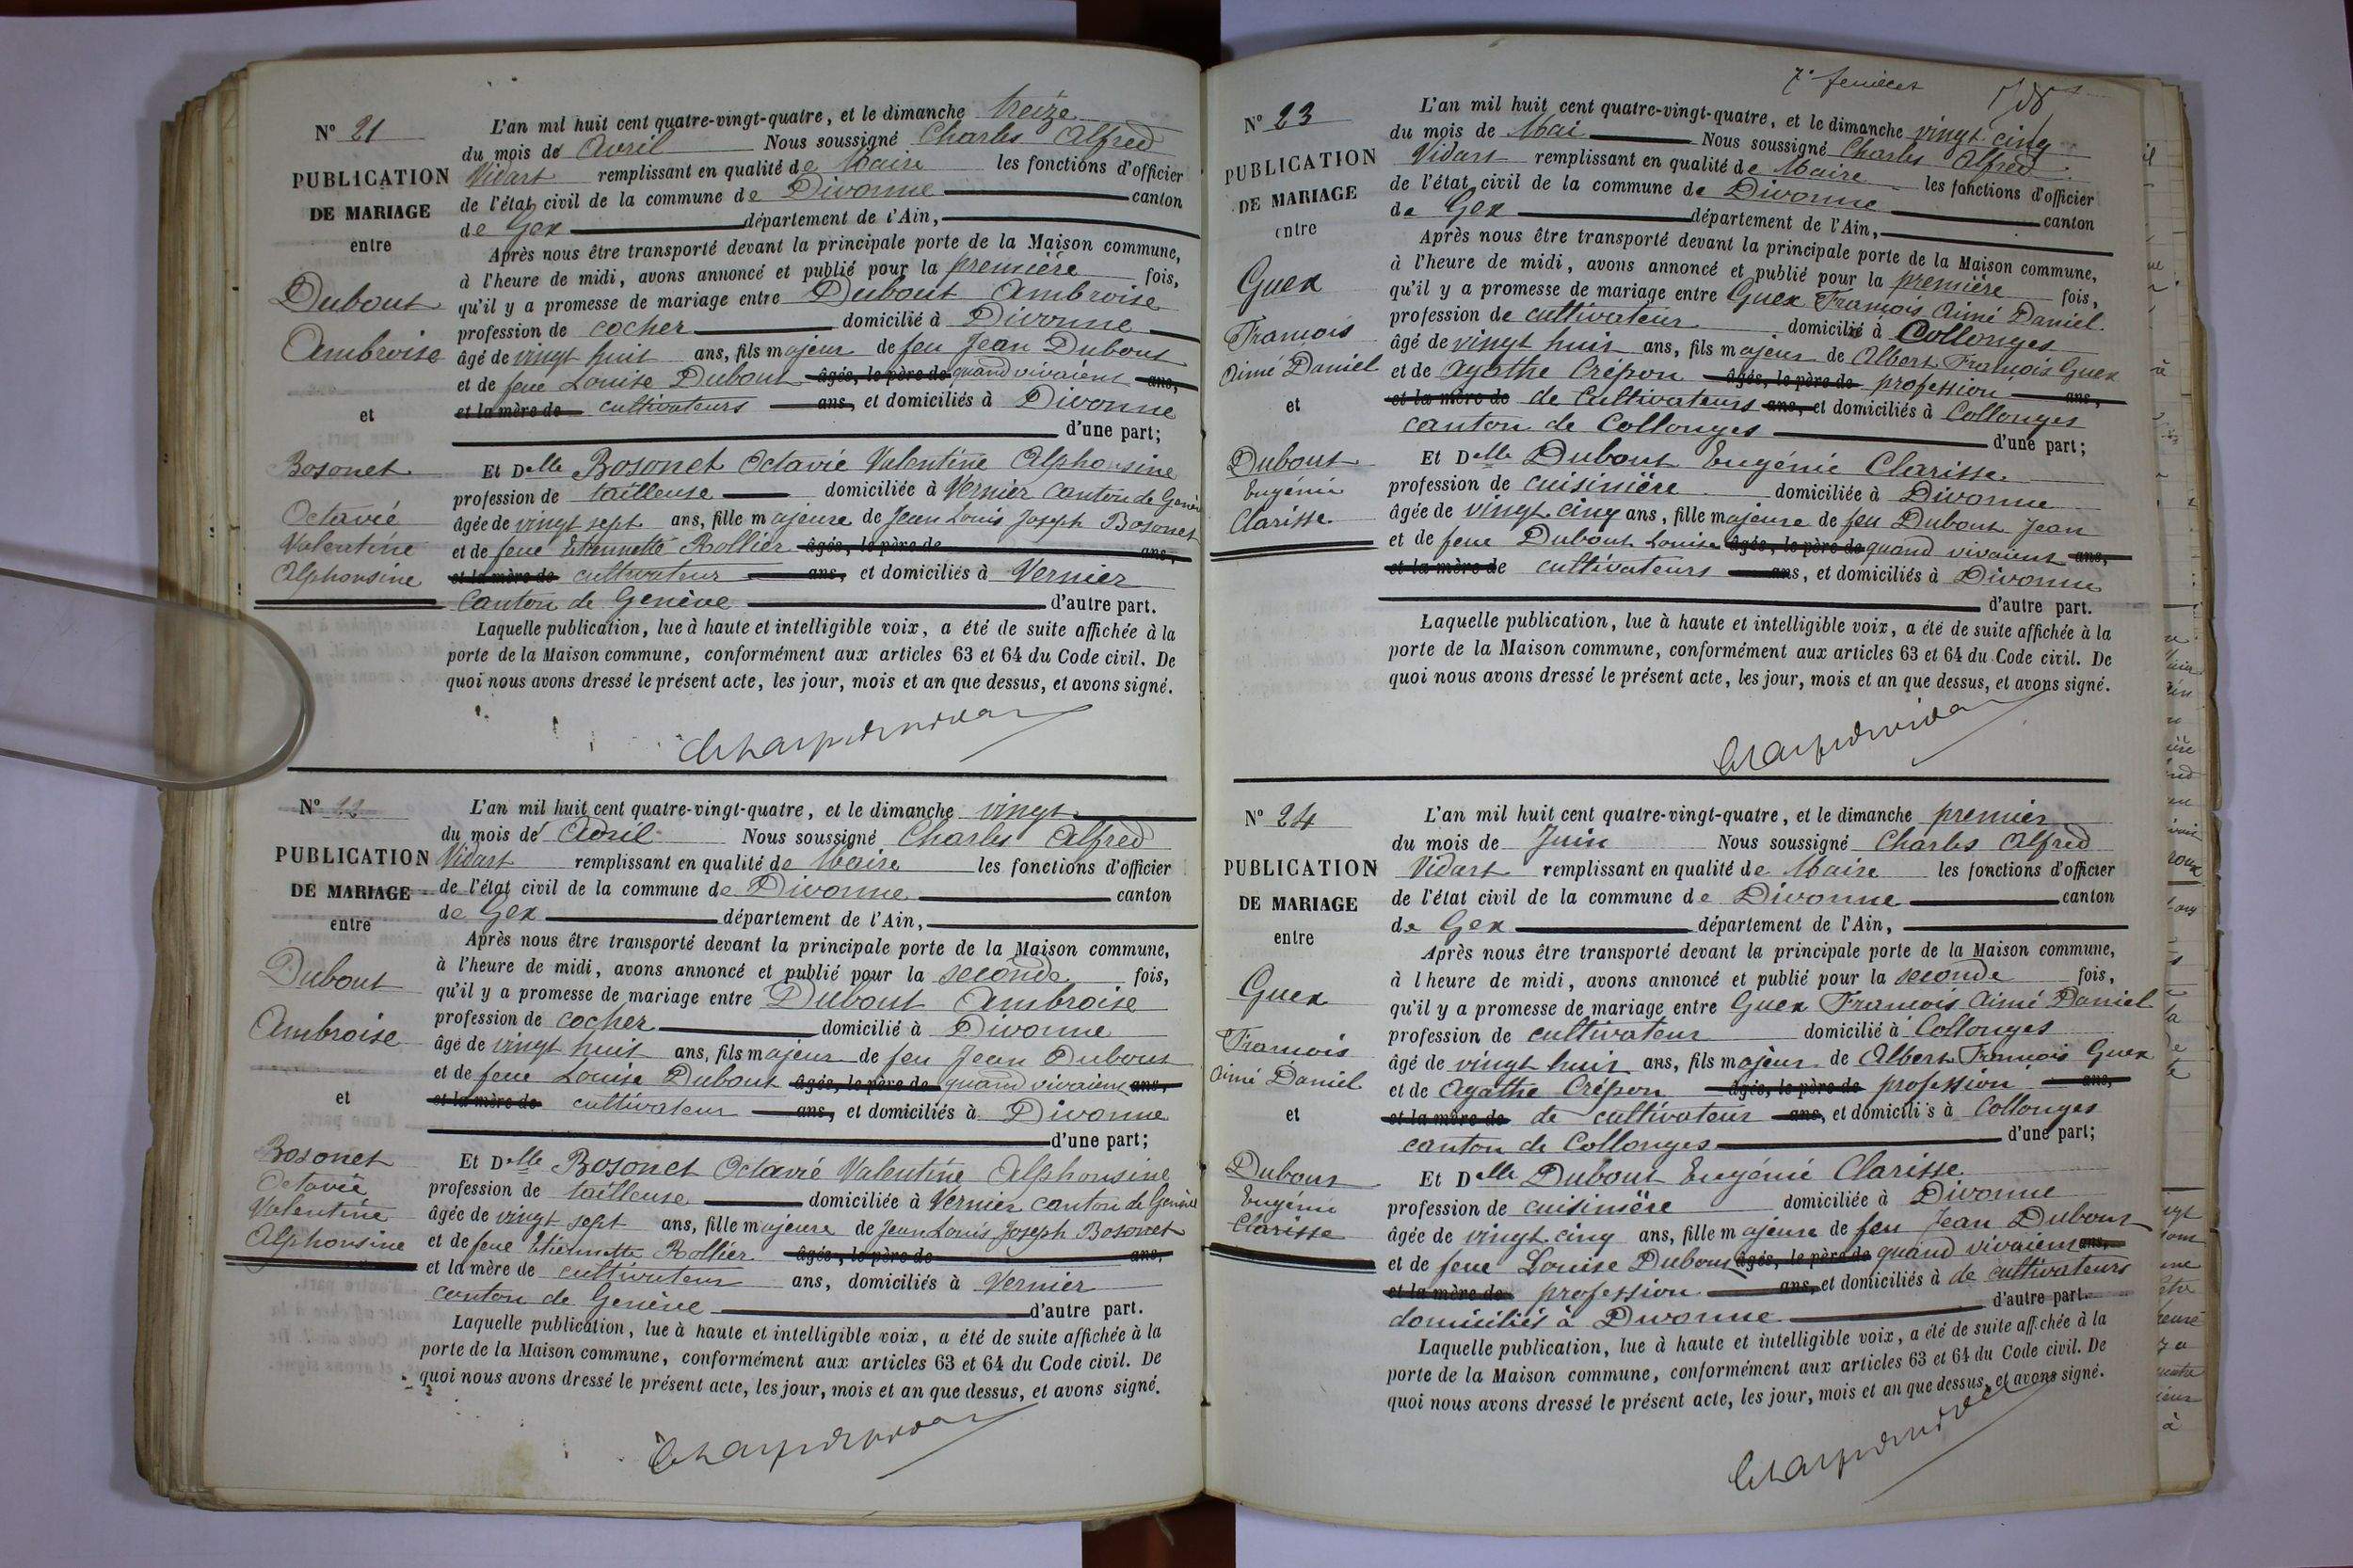 Nº 21
PUBLICATION
DE MARIAGE
entre
Dubout
Ambroise
et
Bosonet
Octavié
Valentine
Alphonsine
L'an mil huit cent quatre-vingt-quatre, et le dimanche treize
du mois de Avril Nous soussigné Charles Alfred
Vidart remplissant en qualité de Maire les fonctions d'officier
de l'état civil de la commune de Divonne canton
de Gex département de l'Ain,
Après nous être transporté devant la principale porte de la Maison commune,
à l'heure de midi, avons annoncé et publié pour la première fois,
qu'il y a promesse de mariage entre Dubout Ambroise
profession de cocher domicilié à Divonne
âgé de vingt huit ans, fils majeur de feu Jean Dubout
et de feue Louise Dubout âgés, le père de quand vivaient ans,
et la mère de cultivateurs ans, et domiciliés à Divonne
d'une part;
Et Delle Bosonet Octavié Valentine Alphonsine
profession de tailleuse domiciliée à Vernier canton de Genève
âgée de vingt sept ans, fille majeure de Jean Louis Joseph Bosonet
et de feue Etiennette Rollier âgés, le père de ans,
et la mère de cultivateur ans, et domiciliés à Vernier
Canton de Genève d'autre part.
Laquelle publication, lue à haute et intelligible voix, a été de suite affichée à la
porte de la Maison commune, conformément aux articles 63 et 64 du Code civil. De
quoi nous avons dressé le présent acte, les jour, mois et an que dessus, et avons signé.
Nº 22
PUBLICATION
DE MARIAGE
entre
Dubout
Ambroise
et
Bosonet
Octavié
Valentine
Alphonsine
L'an mil huit cent quatre-vingt-quatre, et le dimanche vingt
du mois de Avril Nous soussigné Charles Alfred
Vidart remplissant en qualité de Maire les fonctions d'officier
de l'état civil de la commune de Divonne canton
de Gex département de l'Ain,
Après nous être transporté devant la principale porte de la Maison commune,
à l'heure de midi, avons annoncé et publié pour la seconde fois,
qu'il y a promesse de mariage entre Dubout Ambroise
profession de cocher domicilié à Divonne
âgé de vingt huit ans, fils majeur de feu Jean Dubout
et de feue Louise Dubout âgés, le père de quand vivaient ans,
et la mère de cultivateur ans, et domiciliés à Divonne
d'une part;
Et Delle Bosonet Octavié Valentine Alphonsine
profession de tailleuse domiciliée à Vernier canton de Genève
âgée de vingt sept ans, fille majeure de Jean Louis Joseph Bosonet
et de feue Etiennette Rollier âgés, le père de ans,
et la mère de cultivateur ans, domiciliés à Vernier
canton de Genève d'autre part.
Laquelle publication, lue à haute et intelligible voix, a été de suite affichée à la
porte de la Maison commune, conformément aux articles 63 et 64 du Code civil. De
quoi nous avons dressé le présent acte, les jour, mois et an que dessus, et avons signé.
Nº 23
PUBLICATION
DE MARIAGE
entre
Guex
François
Aimé Daniel
et
Dubout
Eugénie
Clarisse
L'an mil huit cent quatre-vingt-quatre, et le dimanche vingt cinq
du mois de Mai Nous soussigné Charles Alfred
Vidart remplissant en qualité de Maire les fonctions d'officier
de l'état civil de la commune de Divonne canton
de Gex département de l'Ain,
Après nous être transporté devant la principale porte de la Maison commune,
à l'heure de midi, avons annoncé et publié pour la première fois,
qu'il y a promesse de mariage entre Guex François Aimé Daniel
profession de cultivateur domicilié à Collonges
âgé de vingt huit ans, fils majeur de Albert François Guex
et de Agathe Crépon âgés, le père de profession ans,
et la mère de de Cultivateurs ans, et domiciliés à Collonges
canton de Collonges d'une part;
Et Delle Dubout Eugénie Clarisse
profession de cuisinière domiciliée à Divonne
âgée de vingt cinq ans, fille majeure de feu Dubout Jean
et de feue Dubout Louise âgés, le père de quand vivaient ans,
et la mère de cultivateurs ans, et domiciliés à Divonne
d'autre part.
Laquelle publication, lue à haute et intelligible voix, a été de suite affichée à la
porte de la Maison commune, conformément aux articles 63 et 64 du Code civil. De
quoi nous avons dressé le présent acte, les jour, mois et an que dessus, et avons signé.
Nº 24
PUBLICATION
DE MARIAGE
entre
Guex
François
Aimé Daniel
et
Dubout
Eugénie
Clarisse
L'an mil huit cent quatre-vingt-quatre, et le dimanche premier
du mois de Juin Nous soussigné Charles Alfred
Vidart remplissant en qualité de Maire les fonctions d'officier
de l'état civil de la commune de Divonne canton
de Gex département de l'Ain,
Après nous être transporté devant la principale porte de la Maison commune,
à l'heure de midi, avons annoncé et publié pour la seconde fois,
qu'il y a promesse de mariage entre Guex François Aimé Daniel
profession de cultivateur domicilié à Collonges
âgé de vingt huit ans, fils majeur de Albert François Guex
et de Agathe Crépon âgés, le père de profession ans,
et la mère de de cultivateur ans, et domiciliés à Collonges
canton de Collonges d'une part;
Et Delle Dubout Eugénie Clarisse
profession de cuisinière domiciliée à Divonne
âgée de vingt cinq ans, fille majeure de feu Jean Dubout
et de feue Louise Dubout âgés, le père de quand vivaient ans,
et la mère de profession ans, et domiciliés à de cultivateurs
domiciliés à Divonne d'autre part.
Laquelle publication, lue à haute et intelligible voix, a été de suite affichée à la
porte de la Maison commune, conformément aux articles 63 et 64 du Code civil. De
quoi nous avons dressé le présent acte, les jour, mois et an que dessus, et avons signé.